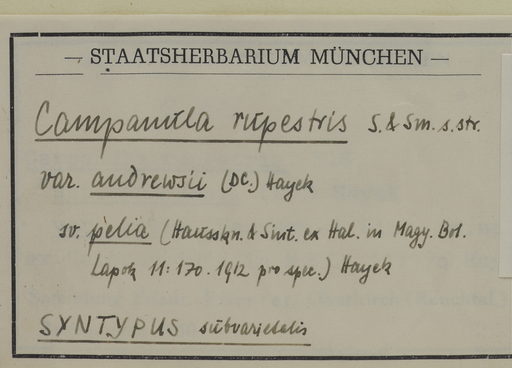 — STAATSHERBARIUM MÜNCHEN —
Campanula rupestris S. & Sm. s. str.
var. andrewsii (DC.) Hayek
sv. pelia (Hausskn. & Sint. ex Hal. in Magy. Bot.
Lapok 11: 170. 1912 pro spec.) Hayek
SYNTYPUS subvarietatis